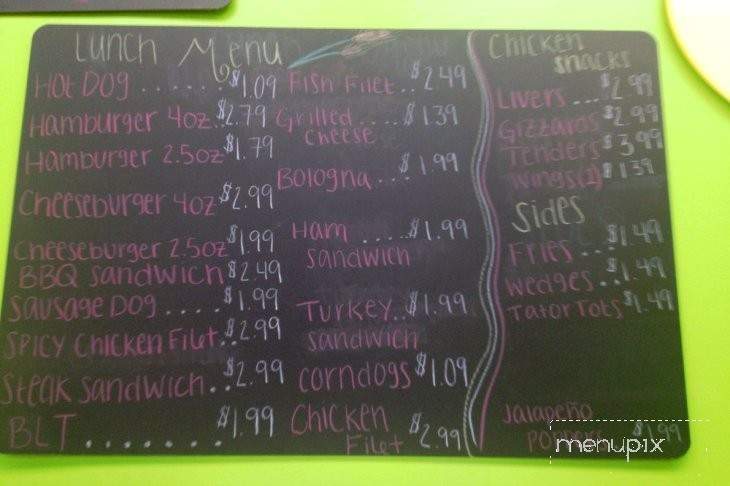 Lunch Menu
Hot Dog ...... $1.09
Hamburger 4oz.. $2.79
Hamburger 2.5oz $1.79
Cheeseburger 4oz $2.99
Cheeseburger 2.5oz $1.99
BBQ Sandwich $2.49
Sausage Dog .... $1.99
Spicy Chicken Filet.. $2.99
Steak Sandwich .. $2.99
BLT ....... $1.99
Fish Filet.. $2.49
Grilled .... $1.39
Cheese
Bologna... $1.99
Ham .... $1.99
Sandwich
Turkey.. $1.99
Sandwich
Corndogs $1.09
Chicken
Filet $2.99
Chicken
Snacks
Livers ... $2.99
Gizzards $2.99
Tenders $3.99
Wings(2) $1.39
Sides
Fries .. $1.49
Wedges .. $1.49
Tator Tots $1.49
Jalapeño
$1.99
menupix